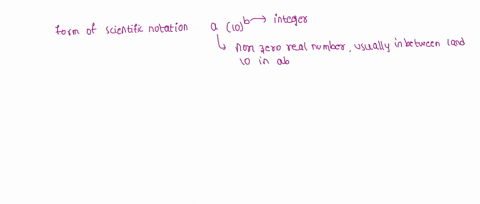 form of scientific notation a (10)^b → integer
↳ non zero real number, usually in between 1 and
10 in ab